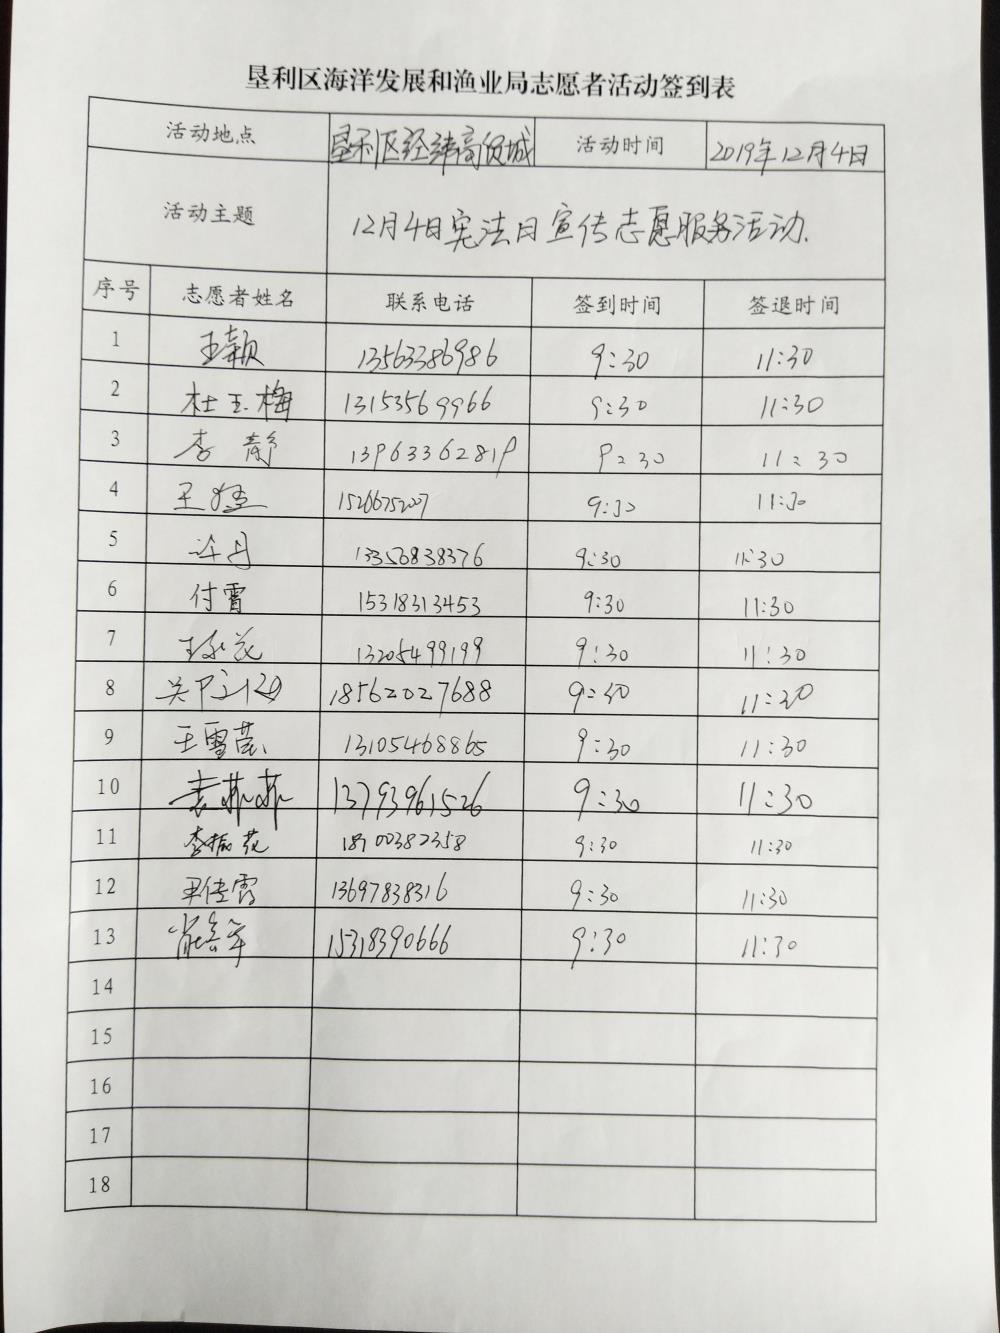 垦利区海洋发展和渔业局志愿者活动签到表
活动地点 垦利区经纬商贸城 活动时间 2019年12月4日
活动主题 12月4日宪法日宣传志愿服务活动.
序号 志愿者姓名 联系电话 签到时间 签退时间
1 王颖 13563386986 9:30 11:30
2 杜玉梅 13153569966 9:30 11:30
3 李静 13963362819 9:30 11:30
4 王 1526675207 9:30 11:30
5 许月 13356838376 9:30 11:30
6 付霄 15318313453 9:30 11:30
7 王花 13205499199 9:30 11:30
8 18562027688 9:30 11:30
9 王雪莹 13105468865 9:30 11:30
10 袁菲菲 13793961526 9:30 11:30
11 李振花 18700382358 9:30 11:30
12 尹传霞 13697838316 9:30 11:30
13 15318390666 9:30 11:30
14
15
16
17
18